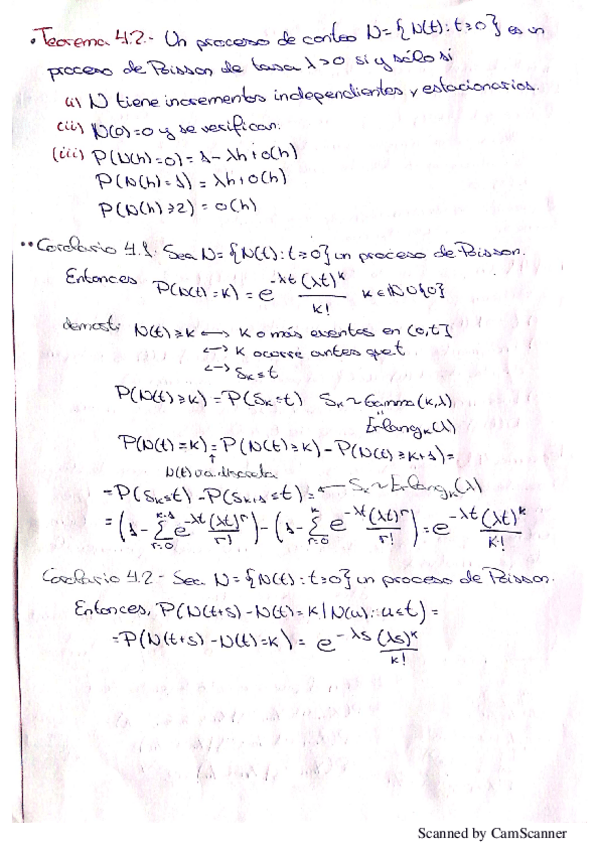 • Teorema 4.2.- Un proceso de conteo N = {N(t) : t ≥ 0} es un
proceso de Poisson de tasa λ > 0 si y sólo si
(i) N tiene incrementos independientes y estacionarios.
(ii) N(0) = 0 y se verifican:
(iii) P(N(h) = 0) = 1 - λh + o(h)
P(N(h) = 1) = λh + o(h)
P(N(h) ≥ 2) = o(h)
•• Corolario 4.1. Sea N = {N(t) : t ≥ 0} un proceso de Poisson.
Entonces P(N(t) = k) = e^{-λt} (λt)^k / k! k ∈ ℕ ∪ {0}
demost: N(t) ≥ k ↔ k o más eventos en (0,t]
↔ k ocurre antes que t
↔ S_k ≤ t
P(N(t) ≥ k) = P(S_k ≤ t) S_k ~ Gamma(k, λ)
Erlang_k(λ)
P(N(t) = k) = P(N(t) ≥ k) - P(N(t) ≥ k+1) =
↑ N(t) va. discreta
= P(S_k ≤ t) - P(S_{k+1} ≤ t) = ← S_k ~ Erlang_k(λ)
= (1 - Σ_{r=0}^{k-1} e^{-λt} (λt)^r / r!) - (1 - Σ_{r=0}^{k} e^{-λt} (λt)^r / r!) = e^{-λt} (λt)^k / k!
Corolario 4.2 - Sea N = {N(t) : t ≥ 0} un proceso de Poisson.
Entonces, P(N(t+s) - N(t) = k | N(u) : u ≤ t) =
= P(N(t+s) - N(t) = k) = e^{-λs} (λs)^k / k!
Scanned by CamScanner